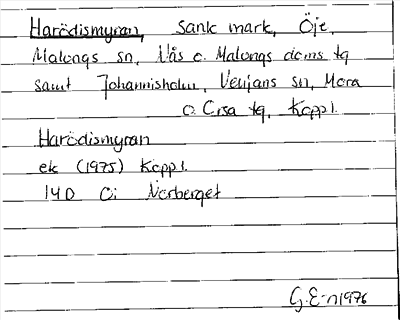 Harödismyran, Sank mark, Öje,
Malungs sn, Nås o. Malungs doms tg
samt Johannisholm, Venjans sn, Mora
o. Orsa tg, Kopp l.
Harödismyran
ek (1975) Kopp l.
14D Ci Norberget
G.E-n 1976